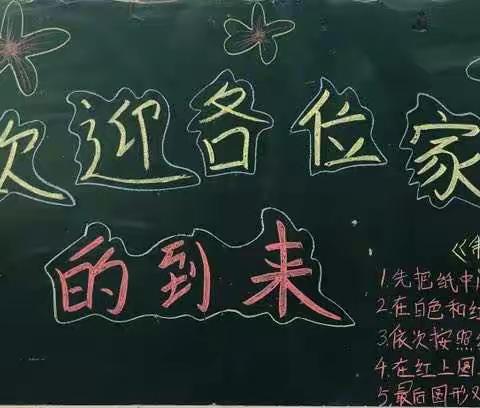 欢迎各位家
的到来
《制
1.先把纸中
2.在白色和红
3.依次按照
4.在红上图
5.最后图形又